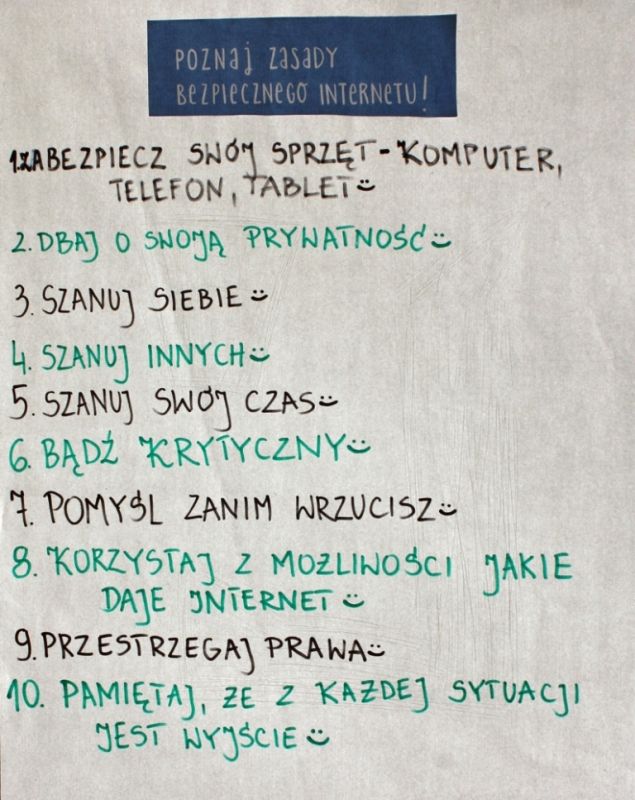 POZNAJ ZASADY
BEZPIECZNEGO INTERNETU!
1. ZABEZPIECZ SWÓJ SPRZĘT - KOMPUTER,
TELEFON, TABLET
2. DBAJ O SWOJĄ PRYWATNOŚĆ
3. SZANUJ SIEBIE
4. SZANUJ INNYCH
5. SZANUJ SWÓJ CZAS
6. BĄDŹ KRYTYCZNY
7. POMYŚL ZANIM WRZUCISZ
8. KORZYSTAJ Z MOŻLIWOŚCI JAKIE
DAJE INTERNET
9. PRZESTRZEGAJ PRAWA
10. PAMIĘTAJ, ŻE Z KAŻDEJ SYTUACJI
JEST WYJŚCIE